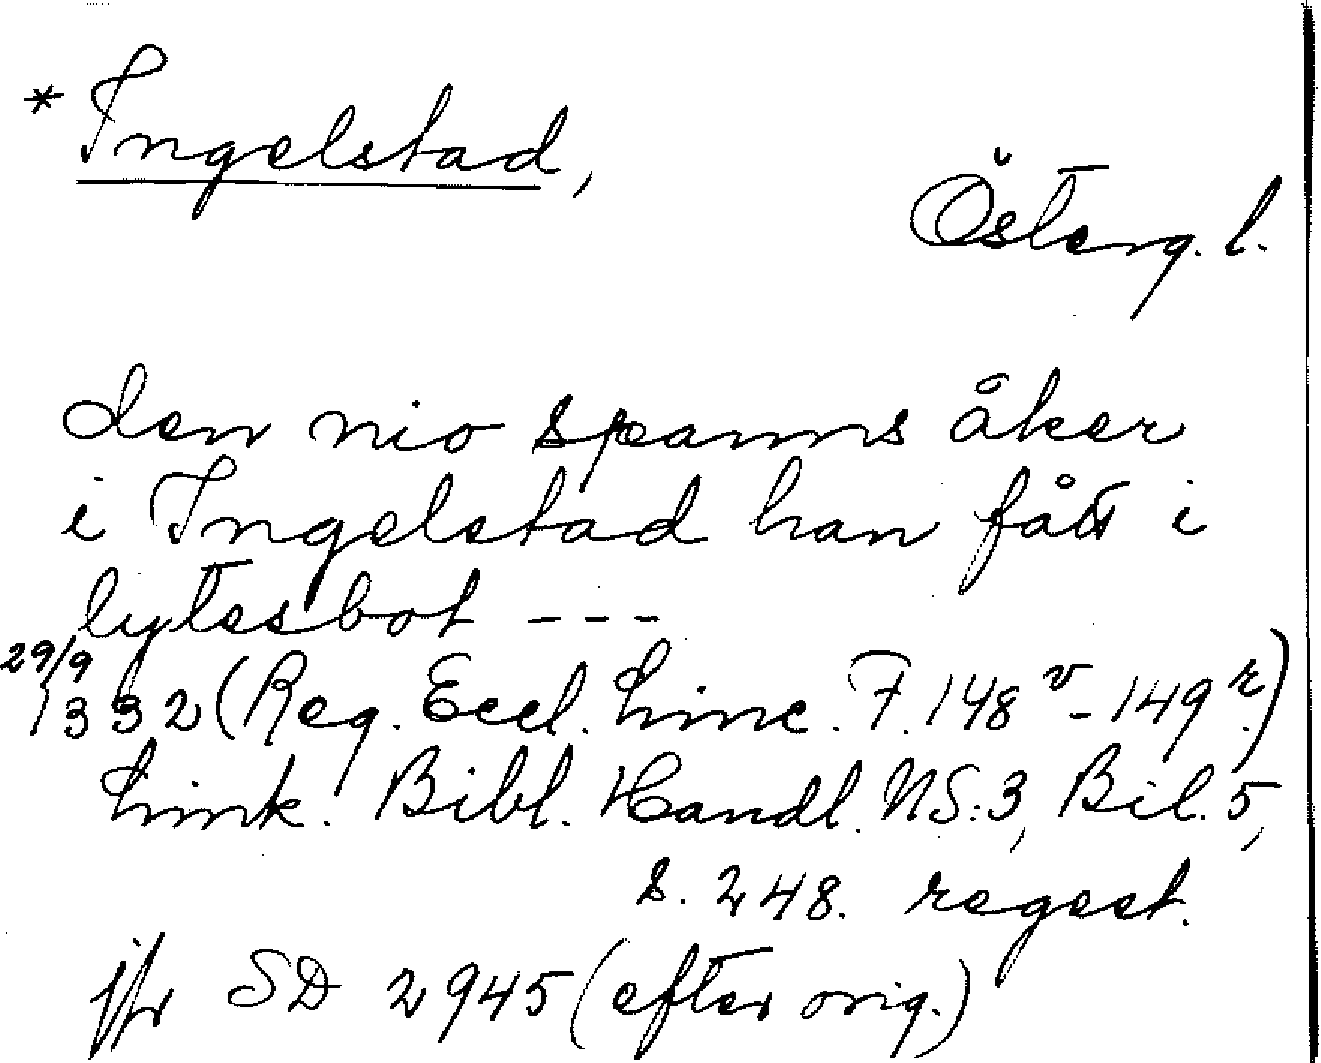 * Ingelstad,
Österg. l.
den nio spanns åker
i Ingelstad han fått i
lytesbot ---
29/9
1332 (Reg. Eccl. Linc. F. 148 v - 149 r.)
Link. Bibl. Handl. NS:3, Bil. 5,
s. 248. regest.
jfr SD 2945 (efter orig.)